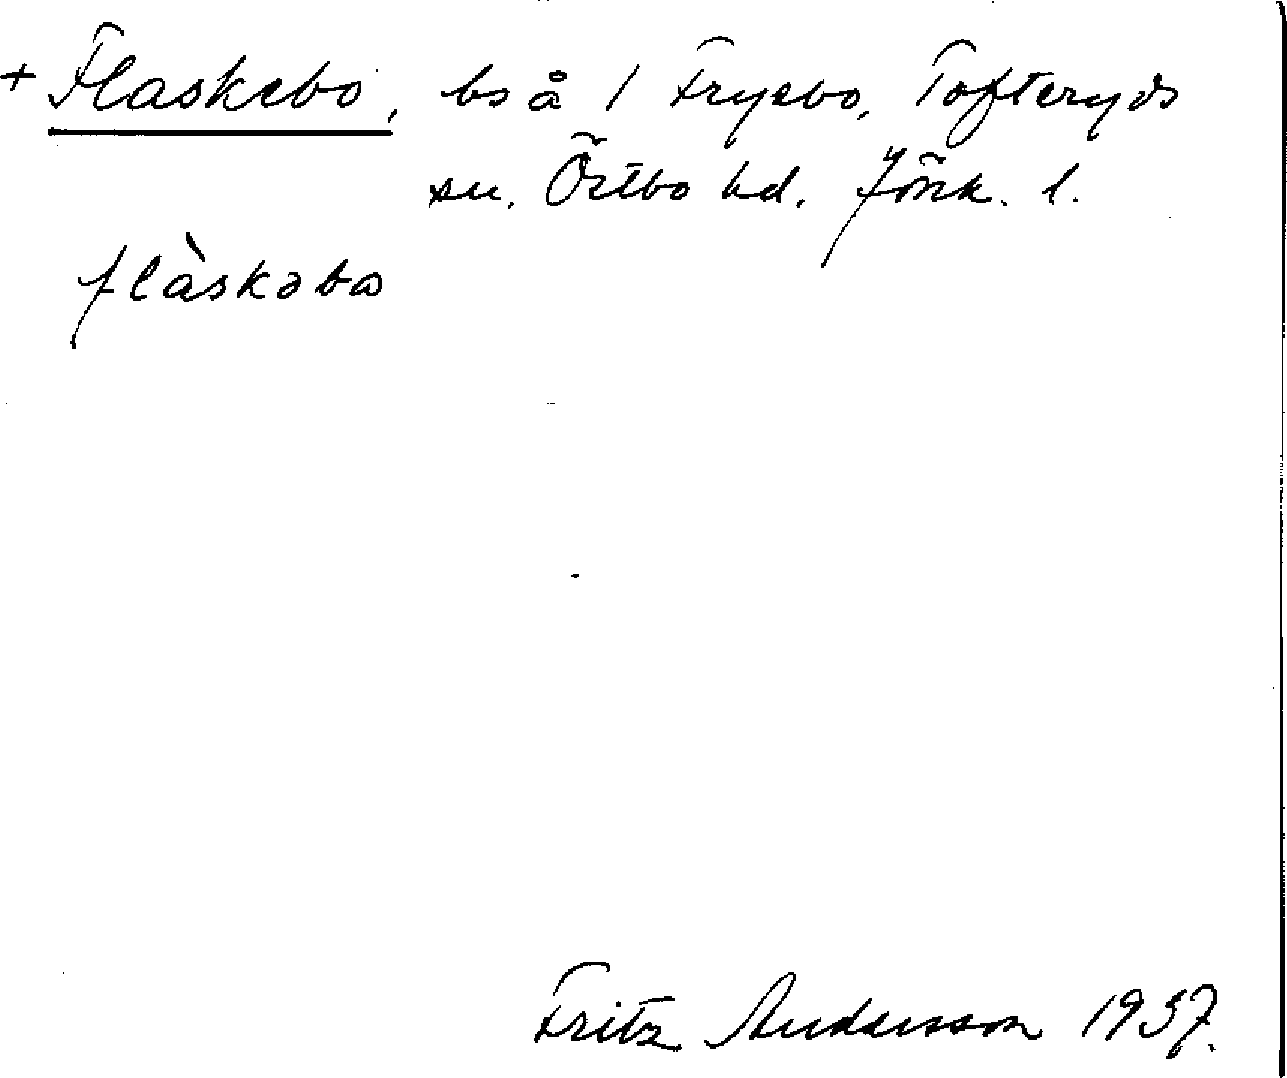 + Flaskebo, bs å 1 Fryebo, Tofteryds
sn. Östbo hd. Jönk. l.
flàskəbω
Fritz Andersson 1937.